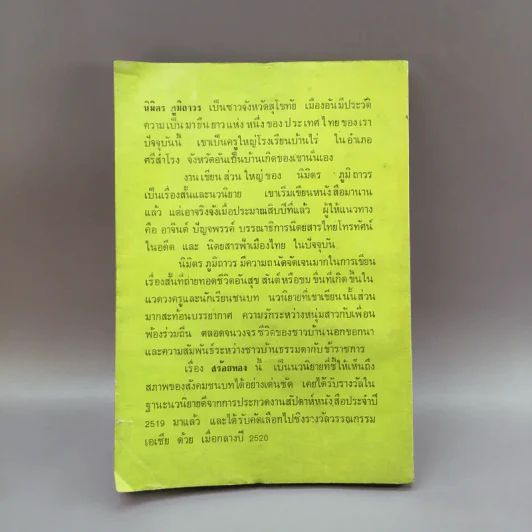 นิมิตร ภูมิถาวร เป็นชาวจังหวัดสุโขทัย เมืองอันมีประวัติ
ความเป็นมายืนยาวแห่งหนึ่งของประเทศไทยของเรา
ปัจจุบันนี้ เขาเป็นครูใหญ่โรงเรียนบ้านไร่ ในอำเภอ
ศรีสำโรง จังหวัดอันเป็นบ้านเกิดของเขานั่นเอง
งานเขียนส่วนใหญ่ของ นิมิตร ภูมิถาวร
เป็นเรื่องสั้นและนวนิยาย เขาเริ่มเขียนหนังสือมานาน
แล้ว แต่เอาจริงจังเมื่อประมาณสิบปีที่แล้ว ผู้ให้แนวทาง
คือ อาจินต์ ปัญจพรรค์ บรรณาธิการนิตยสารไทยโทรทัศน์
ในอดีต และ นิตยสารฟ้าเมืองไทย ในปัจจุบัน
นิมิตร ภูมิถาวร มีความถนัดจัดเจนมากในการเขียน
เรื่องสั้นที่ถ่ายทอดชีวิตอันสุขสันต์หรือขมขื่นที่เกิดขึ้นใน
แวดวงครูและนักเรียนชนบท นวนิยายที่เขาเขียนนั้นส่วน
มากสะท้อนบรรยากาศ ความรักระหว่างหนุ่มสาวกับเพื่อน
พ้องร่วมถิ่น ตลอดจนวงจรชีวิตของชาวบ้านนอกขอกนา
และความสัมพันธ์ระหว่างชาวบ้านธรรมดากับข้าราชการ
เรื่อง สร้อยทอง นี้ เป็นนวนิยายที่ชี้ให้เห็นถึง
สภาพของสังคมชนบทได้อย่างเด่นชัด เคยได้รับรางวัลใน
ฐานะนวนิยายดีจากการประกวดงานสัปดาห์หนังสือประจำปี
2519 มาแล้ว และได้รับคัดเลือกไปชิงรางวัลวรรณกรรม
เอเซีย ด้วย เมื่อกลางปี 2520